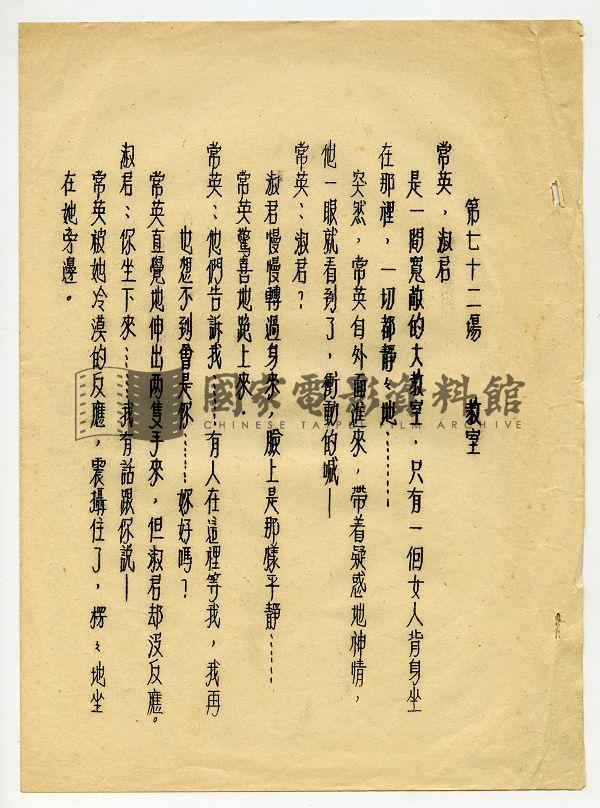 第七十二場　教室
常英，淑君
是一間寬敞的大教室．只有一個女人背身坐
在那裡，一切都靜々地……
突然，常英自外面進來，帶着疑惑地神情，
他一眼就看到了，衝動的喊—
常英：淑君？
淑君慢慢轉過身來，臉上是那樣平靜……
常英驚喜地跑上來．
常英：他們告訴我……有人在這裡等我，我再
也想不到會是你……妳好嗎？
常英直覺地伸出两隻手來，但淑君却沒反應。
淑君：你坐下來……我有話跟你說—
常英被她冷漠的反應，震攝住了，楞々地坐
在她旁邊。
國家電影資料館
CHINESE TAIPEI FILM ARCHIVE